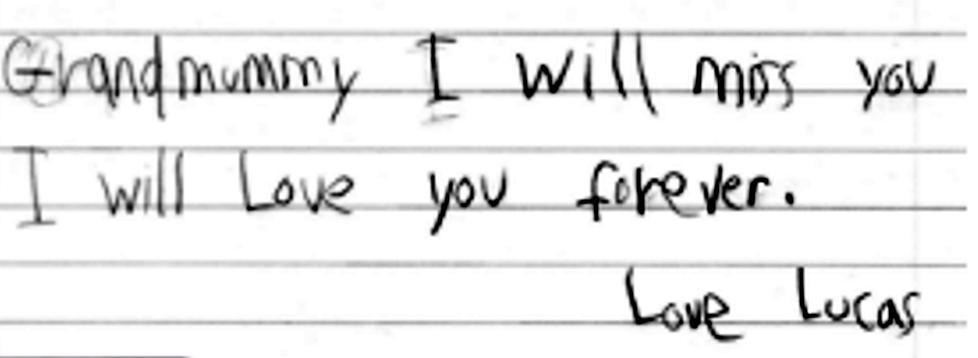 Grandmummy I will miss you
I will Love you forever.
Love Lucas